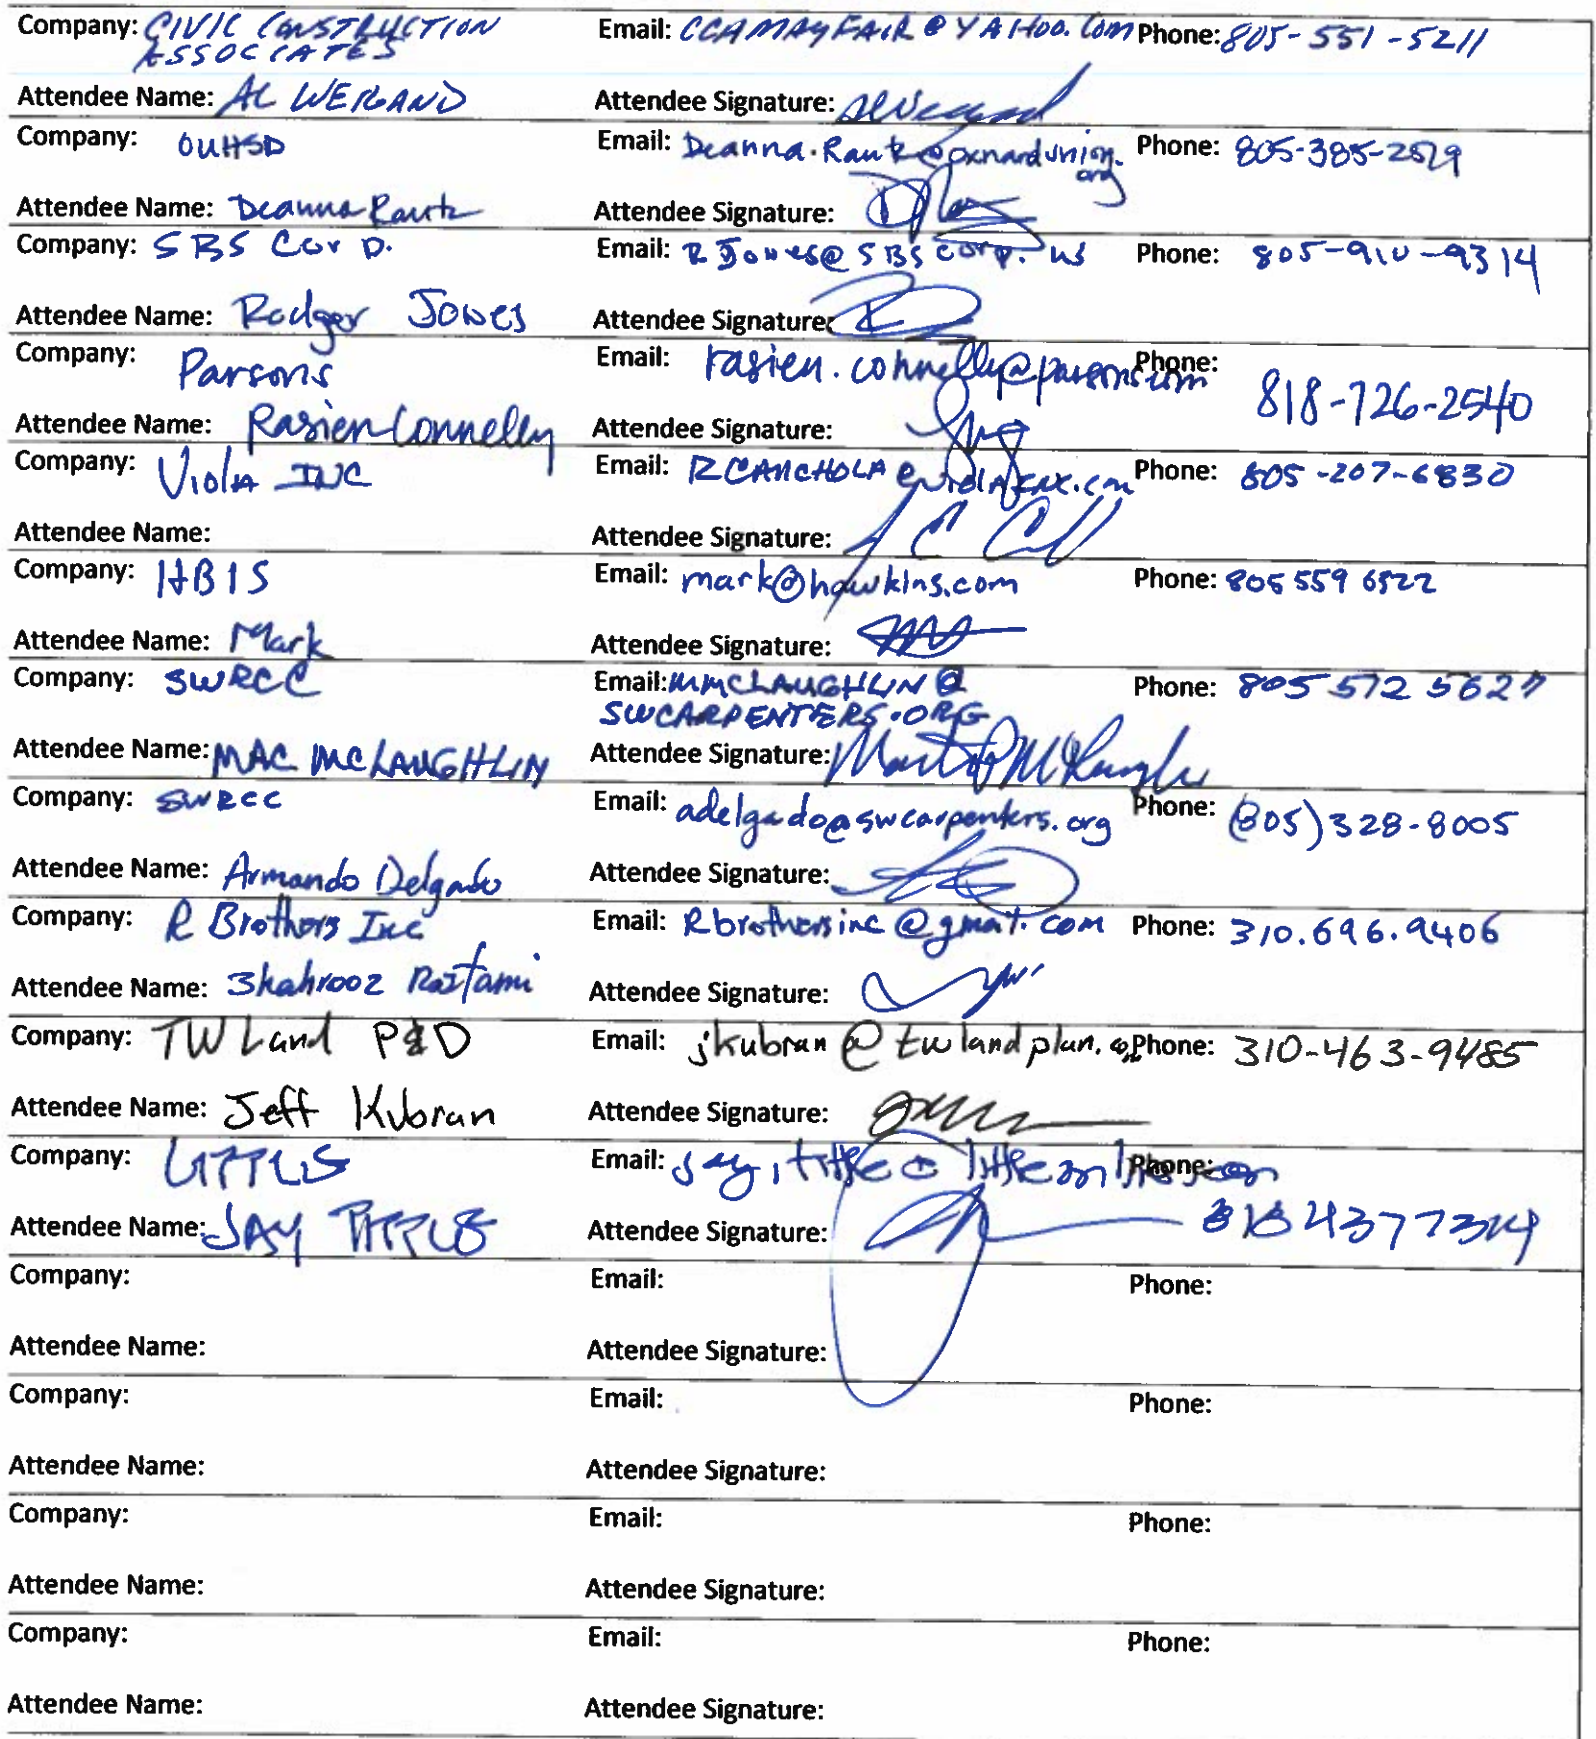 Company: CIVIC CONSTRUCTION Email: CCAMAYFAIR@YAHOO.COM Phone: 805-551-5211
ASSOCIATES
Attendee Name: AL WEILAND Attendee Signature:
Company: OUHSD Email: Deanna.Rantz@oxnardunion. Phone: 805-385-2519
org
Attendee Name: Deanna Rantz Attendee Signature:
Company: SBS Corp. Email: RJones@SBScorp.us Phone: 805-910-9314
Attendee Name: Rodger Jones Attendee Signature:
Company: Parsons Email: rasien.connelly@parsons.com Phone:
818-726-2540
Attendee Name: Rasien Connelly Attendee Signature:
Company: Viola INC Email: RCANCHOLA@violainc.com Phone: 805-207-6830
Attendee Name: Attendee Signature:
Company: HBIS Email: mark@hawkins.com Phone: 805 559 6522
Attendee Name: Mark Attendee Signature:
Company: SWRCC Email: MMCLAUGHLIN@ Phone: 805 572 5627
SWCARPENTERS.ORG
Attendee Name: MAC MCLAUGHLIN Attendee Signature:
Company: SWRCC Email: adelgado@swcarpenters.org Phone: (805)328-8005
Attendee Name: Armando Delgado Attendee Signature:
Company: R Brothers Inc Email: Rbrothersinc@gmail.com Phone: 310.696.9406
Attendee Name: Shahrooz Rostami Attendee Signature:
Company: TW Land P&D Email: jkubran@twlandplan.com Phone: 310-463-9485
Attendee Name: Jeff Kubran Attendee Signature:
Company: Email: Phone:
Attendee Name: JAY Attendee Signature: 818 4377314
Company: Email: Phone:
Attendee Name: Attendee Signature:
Company: Email: Phone:
Attendee Name: Attendee Signature:
Company: Email: Phone:
Attendee Name: Attendee Signature:
Company: Email: Phone:
Attendee Name: Attendee Signature: